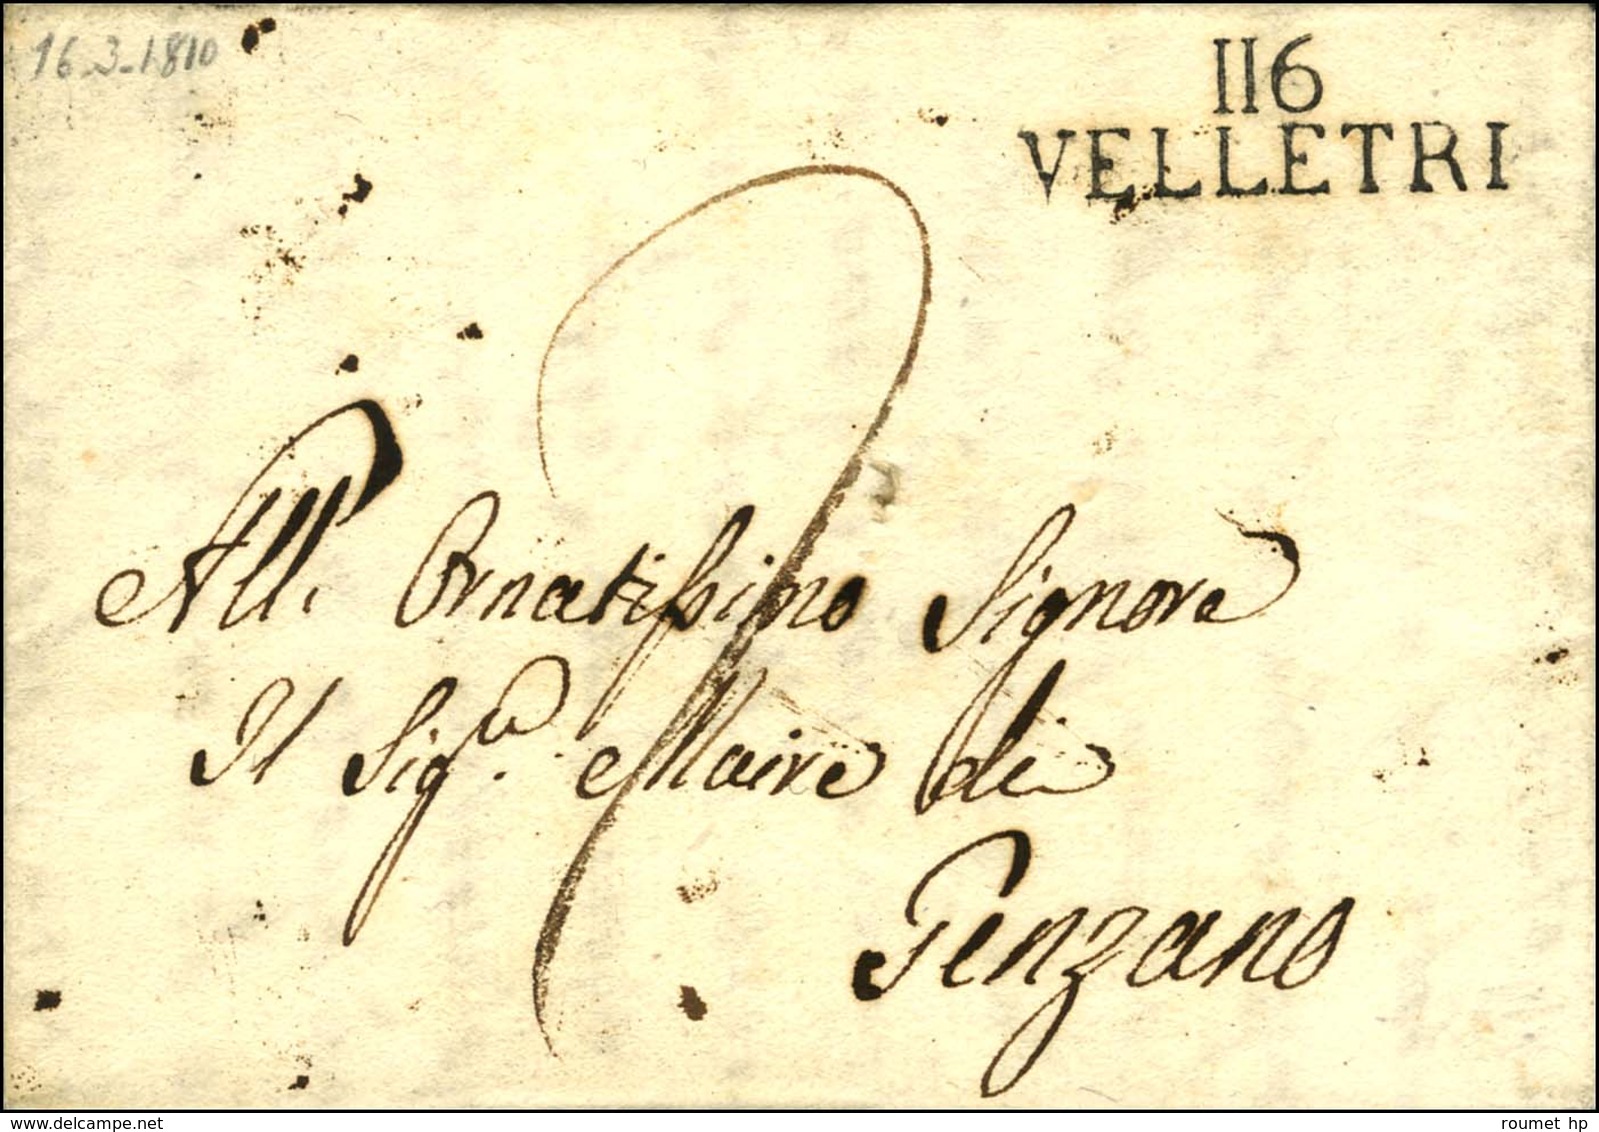 16-3-1810
116
VELLETRI
All' Ornatissimo Signore
Il Sigre Maire di
Genzano
www.delcampe.net
roumet hp